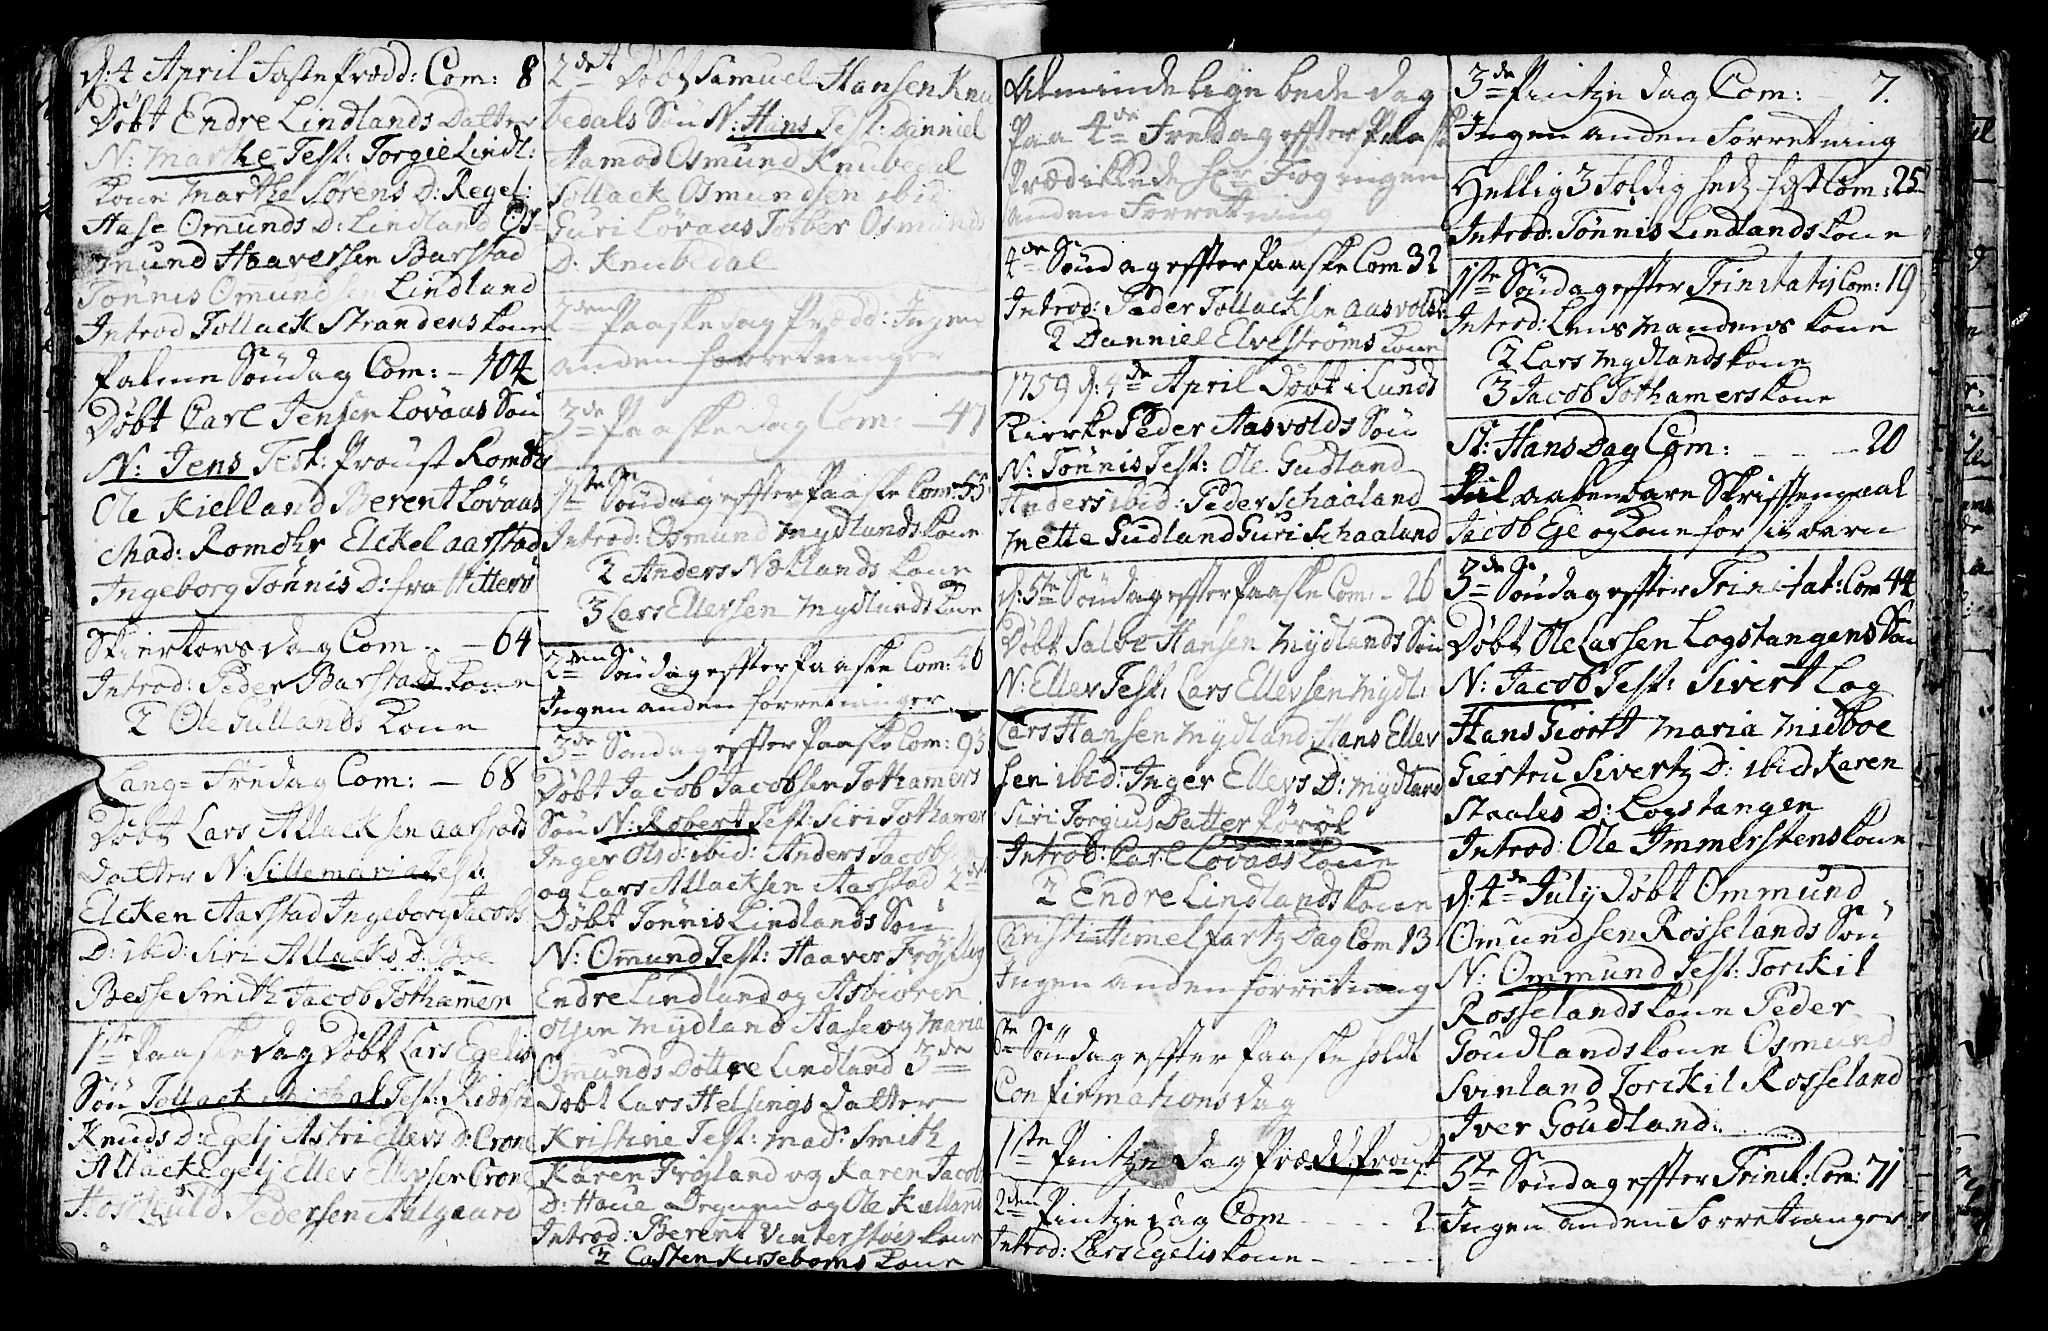 d: 4 April Faste Prædd: Com: 8
Døbt Endre Lindlands Datter
N: Marthe Test: Torgie Lindl:
Kone Marthe Sørens D: Regef:
Aase Omunds D: Lindland Os=
mund Haaversen Barstad
Tønnis Omundsen Lindland
Introd Tollack Strandens Kone
Palme Søndag Com: – 104
Døbt Carl Jensen Lovaas Søn
N: Jens Test: Proust Romdhr
Ole Kielland Berent Lovaas
Mad: Romdhr Elckel Aarstad
Ingeborg Tønnis D: fra Witters
Skiertorsdag Com – 64
Introd: Peder Barstads Kone
2 Ole Gullands Kone
Lang= Fredag Com: – 68
Døbt Lars Atlacksen Aarstads
Datter N: Sillemaria Test:
Elcken Aarstad Ingeborg Jacobs
D: ibid: Siri Atlacks D: Boe
Besse Smith Jacob Tothamer
1ste Paaske Dag Døbt Lars Egelis
Søn Tollack Michal Test:
Knuds D: Egelj Astri Ellevs D: Crone
Atlack Egelj Ellev Ellevsen Crone
Hoschuld Pedersen Aalgaard
2det Døbt Samuel Hansen Knu
bedals Søn N: Hans Test: Danniel
Hamod Osmund Knubedal
Tollack Osmundsen ibid
Guri Lovaas Torber Osmunds
D: Knubedal
2den Paaskedag Prædd: Ingen
anden forretninger
3de Paaskedag Com: – 47
1ste Søndag effter Paaske Com: 55
Introd: Osmund Mydlands Kone
2 Anders Nællands Kone
3 Lars Ellevsen Mydlands Kone
2den Søndag effter Paaske Com: 26
Ingen anden forretninger
3de Søndag effter Paaske Com: 93
Døbt Jacob Jacobsen Tothamers
Søn N: Robert Test: Siri Tothamer
Inger Ols d: ibid: Anders Jacobsen
og Lars Atlacksen Aarstad 2det
Døbt Tønnis Lindlands Søn
N: Omund Test: Haaver Frøyland
Endre Lindland og Asbiøren
Olsen Mydland Aase og Maria
Omunds Dottre Lindland 3de
Døbt Lars Helsings Datter
Kristine Test: Mad: Smith
Karen Frøyland og Karen Jacobs
D: Haue Drengen og Ole Kielland
Introd: Berent Vinterstøis Kone
2 Casten Kirseboms Kone
Almindelige bede dag
Paa 4de Fredag effter Paaske
Prædickede Hr: Fog ingen
anden Forretning
4de Søndag effter Paaske Com 32
Introd: Peder Tollacksen Aasvolds K:
2 Danniel Elvestrøms Kone
1759 d: 4de April Døbt i Lunds
Kircke Peder Aasvolds Søn
N: Tønnis Test: Ole Gudland
Anders ibid: Peder Schaaland
Mette Gudland Guri Schaaland
d: 5te Søndag effter Paaske Com: – 26
Døbt Salve Hansen Mydlands Søn
N: Ellev Test: Lars Ellevsen Mydl:
Lars Hansen Mydland Hans Ellev
sen ibid: Inger Ellevs D: Mydland
Siri Torgius Datter Røröl
Introd: Carl Lovaas Kone
2 Endre Lindlands Kone
Christi Himelfartz Dag Com 13
Ingen anden forretning
6te Søndag effter Paaske holdt
Confirmations dag
1ste Pintze dag Prædd: Proust
2den Pintze dag Com – – – 2
Introd: Lars Egelis Kone – – –
3de Pintze dag Com: – 7.
Ingen anden Forretning
Hellig 3 Foldig hedz fest Com: 25
Introd: Tønnis Lindlands Kone
1ste Søndag effter Trinitatis Com: 19
Introd: Lars Mandens Kone
2 Lars Mydlands Kone
3 Jacob Tothamers Kone
St: Hans Dag Com: – – – 20
til aabenbare Skrifftemaal
Jacob Eje og Kone for sit barn
3de Søndag effter Trinitat: Com 44
Døbt Ole Larsen Logstangens Søn
N: Jacob Test: Sivert Log
Hans Giørtt Maria Midboe
Giertru Sivertz D: ibid Karen
Staales D: Logstangen
Introd: Ole Immerstens Kone
d: 4de July Døbt Ommund
Omundsen Rosselands Søn
N: Ommund Test: Torckil
Rosselands Kone Peder
Goudlands Kone Osmund
Svinland Torckil Rosseland
Iver Goudland:
5te Søndag effter Trinit: Com: 71
Ingen anden Forretninger